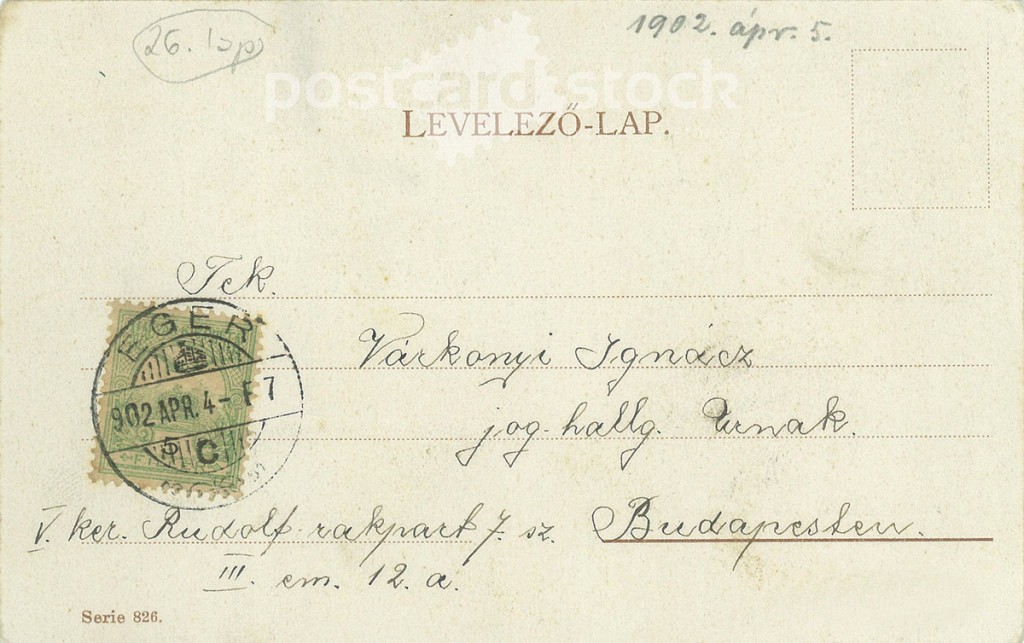 26. lap
1902. ápr. 5.
postcard stock
LEVELEZŐ-LAP.
Tek.
EGER
902 APR. 4 - F 7
C
Várkonyi Ignácz
jog. hallg. Urnak.
V. ker. Rudolf-rakpart 7. sz. Budapesten.
III. em. 12. a.
Serie 826.